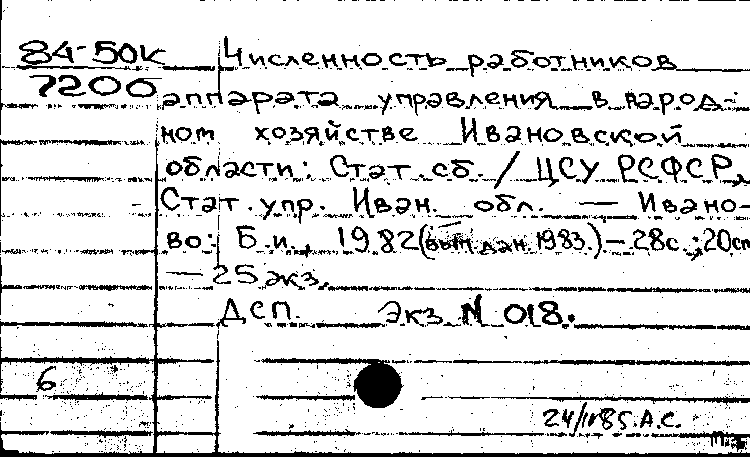 84-50к Численность работников
7200 аппарата управления в народ-
ном хозяйстве Ивановской
области: Стат. сб. / ЦСУ РСФСР,
Стат. упр. Иван. обл. — Ивано-
во: Б.и., 1982 (вып. дан. 1983.) — 28с.; 20см
— 25 экз.
ДСП. Экз. N 018.
6
24/IV85. А.С.